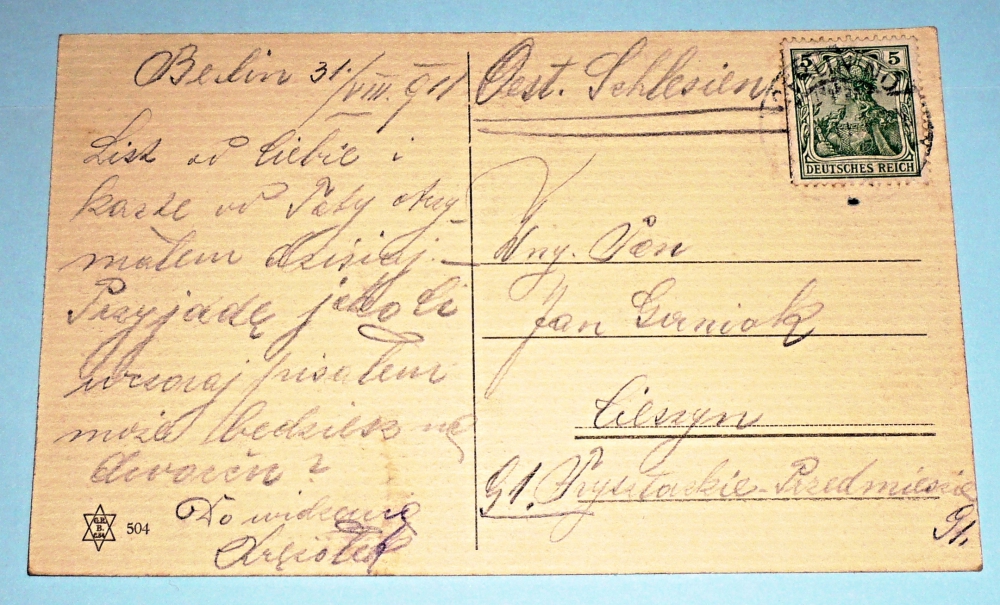 Berlin 31./VIII. 911
List od Ciebie i
kartę od Taty otrzy-
małem dzisiaj. –
Przyjadę jako Ci
wczoraj pisałem
może będziesz na
dworcu?
Do widzenia
504
Oest. Schlesien
5 5
DEUTSCHES REICH
Wny. Pan
Jan Gorniak
Cieszyn
Przedmieście
91.